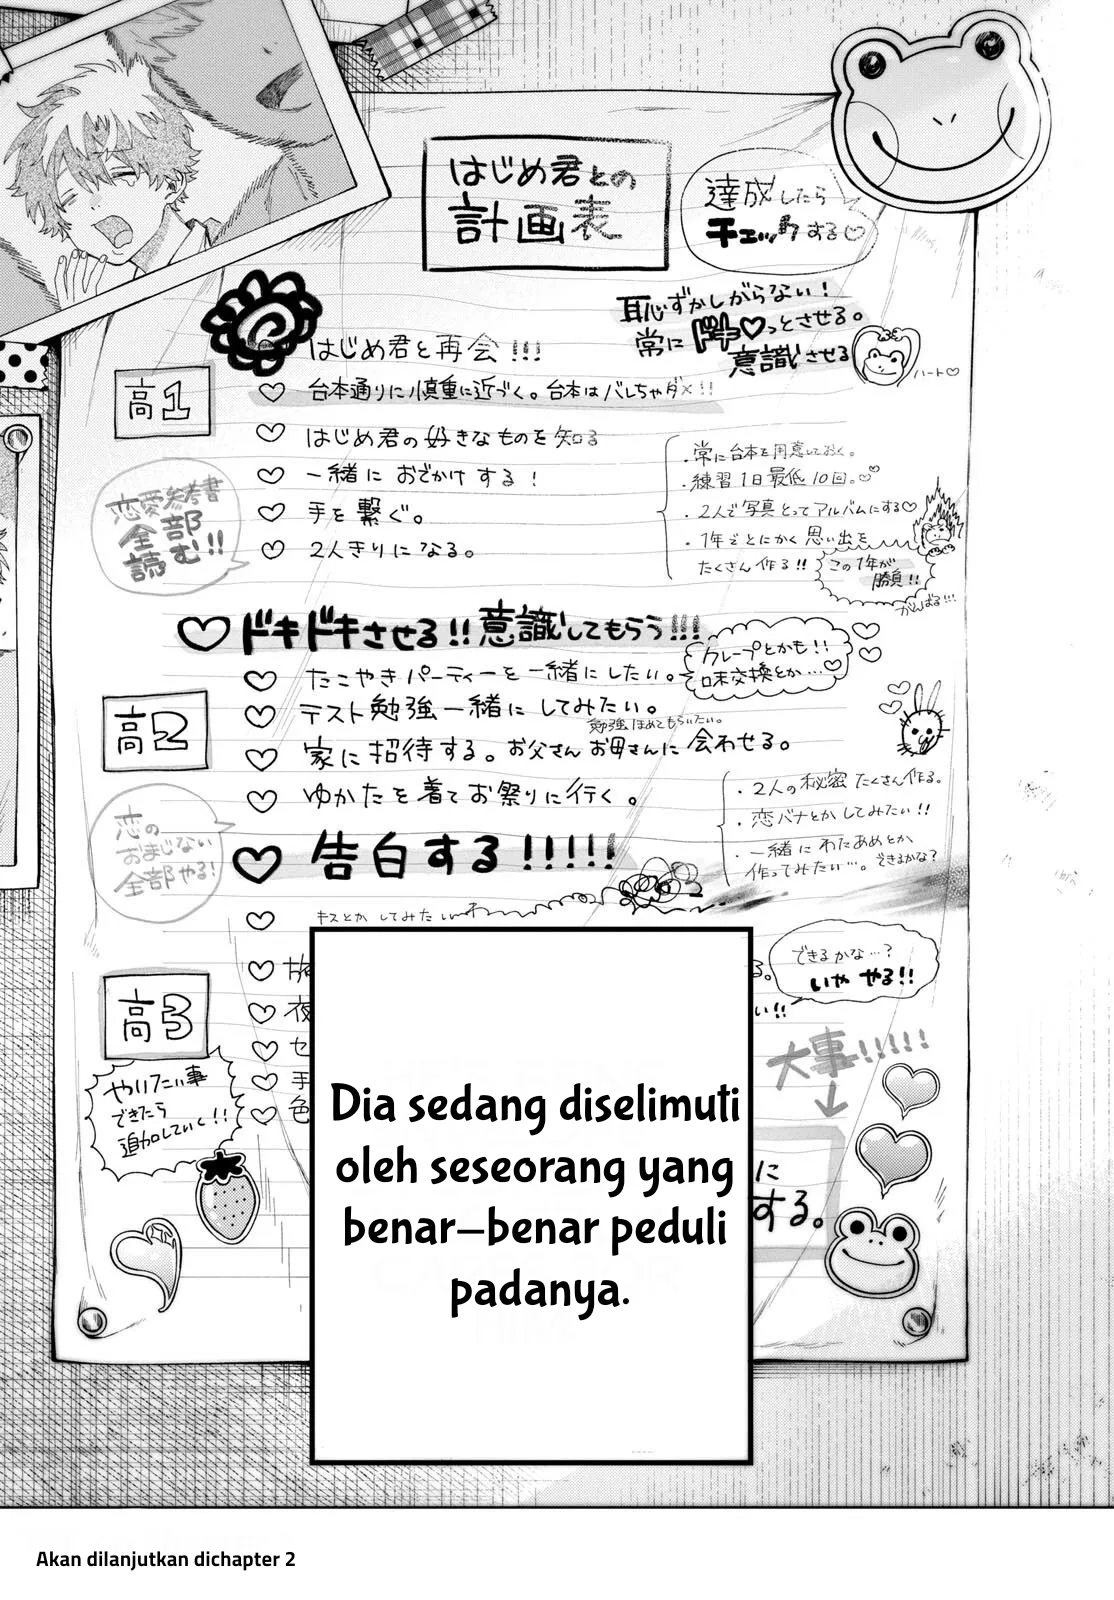 はじめ君との
計画表
達成したら
チェックする♡
恥ずかしがらない！
常にドキ♡っとさせる。
意識させる
ハート♡
はじめ君と再会!!!
高1
♡ 台本通りに慎重に近づく。台本はバレちゃダメ!!
♡ はじめ君の好きなものを知る
♡ 一緒におでかけする！
♡ 手を繋ぐ。
♡ 2人きりになる。
・常に台本を用意しておく。
・練習1日最低10回。♡♡
・2人で写真とってアルバムにする♡
・1年ごとにかく思い出を
たくさん作る!!
この1年が
勝負!!
がんばる!!!
恋愛参考書
全部
読む!!
♡ドキドキさせる!!意識してもらう!!!
♡ たこやきパーティーを一緒にしたい。
クレープとかも!!
味交換とか…♡
高2
♡ テスト勉強一緒にしてみたい。
勉強ほめてもらいたい。
♡ 家に招待する。お父さんお母さんに会わせる。
♡ ゆかたを着てお祭りに行く。
・2人の秘密たくさん作る。
・恋バナとかしてみたい!!
・一緒にわたあめとか
作ってみたい…。できるかな？
恋の
おまじない
全部やる!
♡ 告白する!!!!!
♡ キスとかしてみたい
できるかな…?
いややる!!
高3
♡
♡ 夜
い!!
♡ セ
♡ 手
♡ 色
大事!!!!!
↓
やりたい事
できたら
追加していく!!
に
する。
Dia sedang diselimuti
oleh seseorang yang
benar-benar peduli
padanya.
Akan dilanjutkan dichapter 2